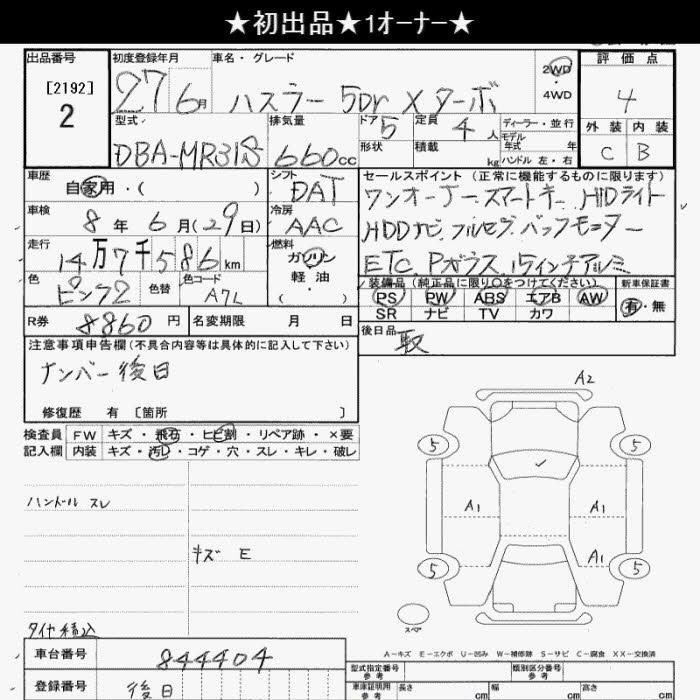 ★初出品★1オーナー★
出品番号 初度登録年月 車名・グレード 2WD 4WD 評価点
[2192] 2 27 6月 ハスラー 5Dr X ターボ 4
型式 排気量 ドア 5 定員 4人 ディーラー・並行 外装 内装
DBA-MR31S 660cc 形状 積載 kg モデル年式 年式 ハンドル 左・右 C B
車歴 シフト セールスポイント (正常に機能するものに限ります)
自家用・( ) DAT ワンオーナー スマートキー HIDライト
車検 8年 6月(29日) 冷房 AAC HDDナビ フルセグ バックモニター
走行 14万7千586km 燃料 ガソリン・軽油 ( ) ETC Pガラス 15インチアルミ
色 ピンク2 色替 色コード A7L 装備品 (純正品に限り○をつけてください) 新車保証書
PS PW ABS エアB AW 有・無
SR ナビ TV カワ
R券 8860円 名変期限 月 日 後日品
取
注意事項申告欄(不具合内容等は具体的に記入して下さい)
ナンバー後日
修復歴 有 〔箇所 〕
検査員 FW キズ・飛石・ヒビ割・リペア跡・×要
記入欄 内装 キズ・汚し・コゲ・穴・スレ・キレ・破レ
A2
5 5
ハンドル スレ
A1 A1
キズ E
A1
5 5
スペア
タイヤ積込
A-キズ E-エクボ U-凹み W-補修跡 S-サビ C-腐食 XX-交換済
車台番号 844404 型式指定番号 参考 類別区分番号 参考
登録番号 後日 車庫証明用 参考 長さ cm 幅 cm 高さ cm